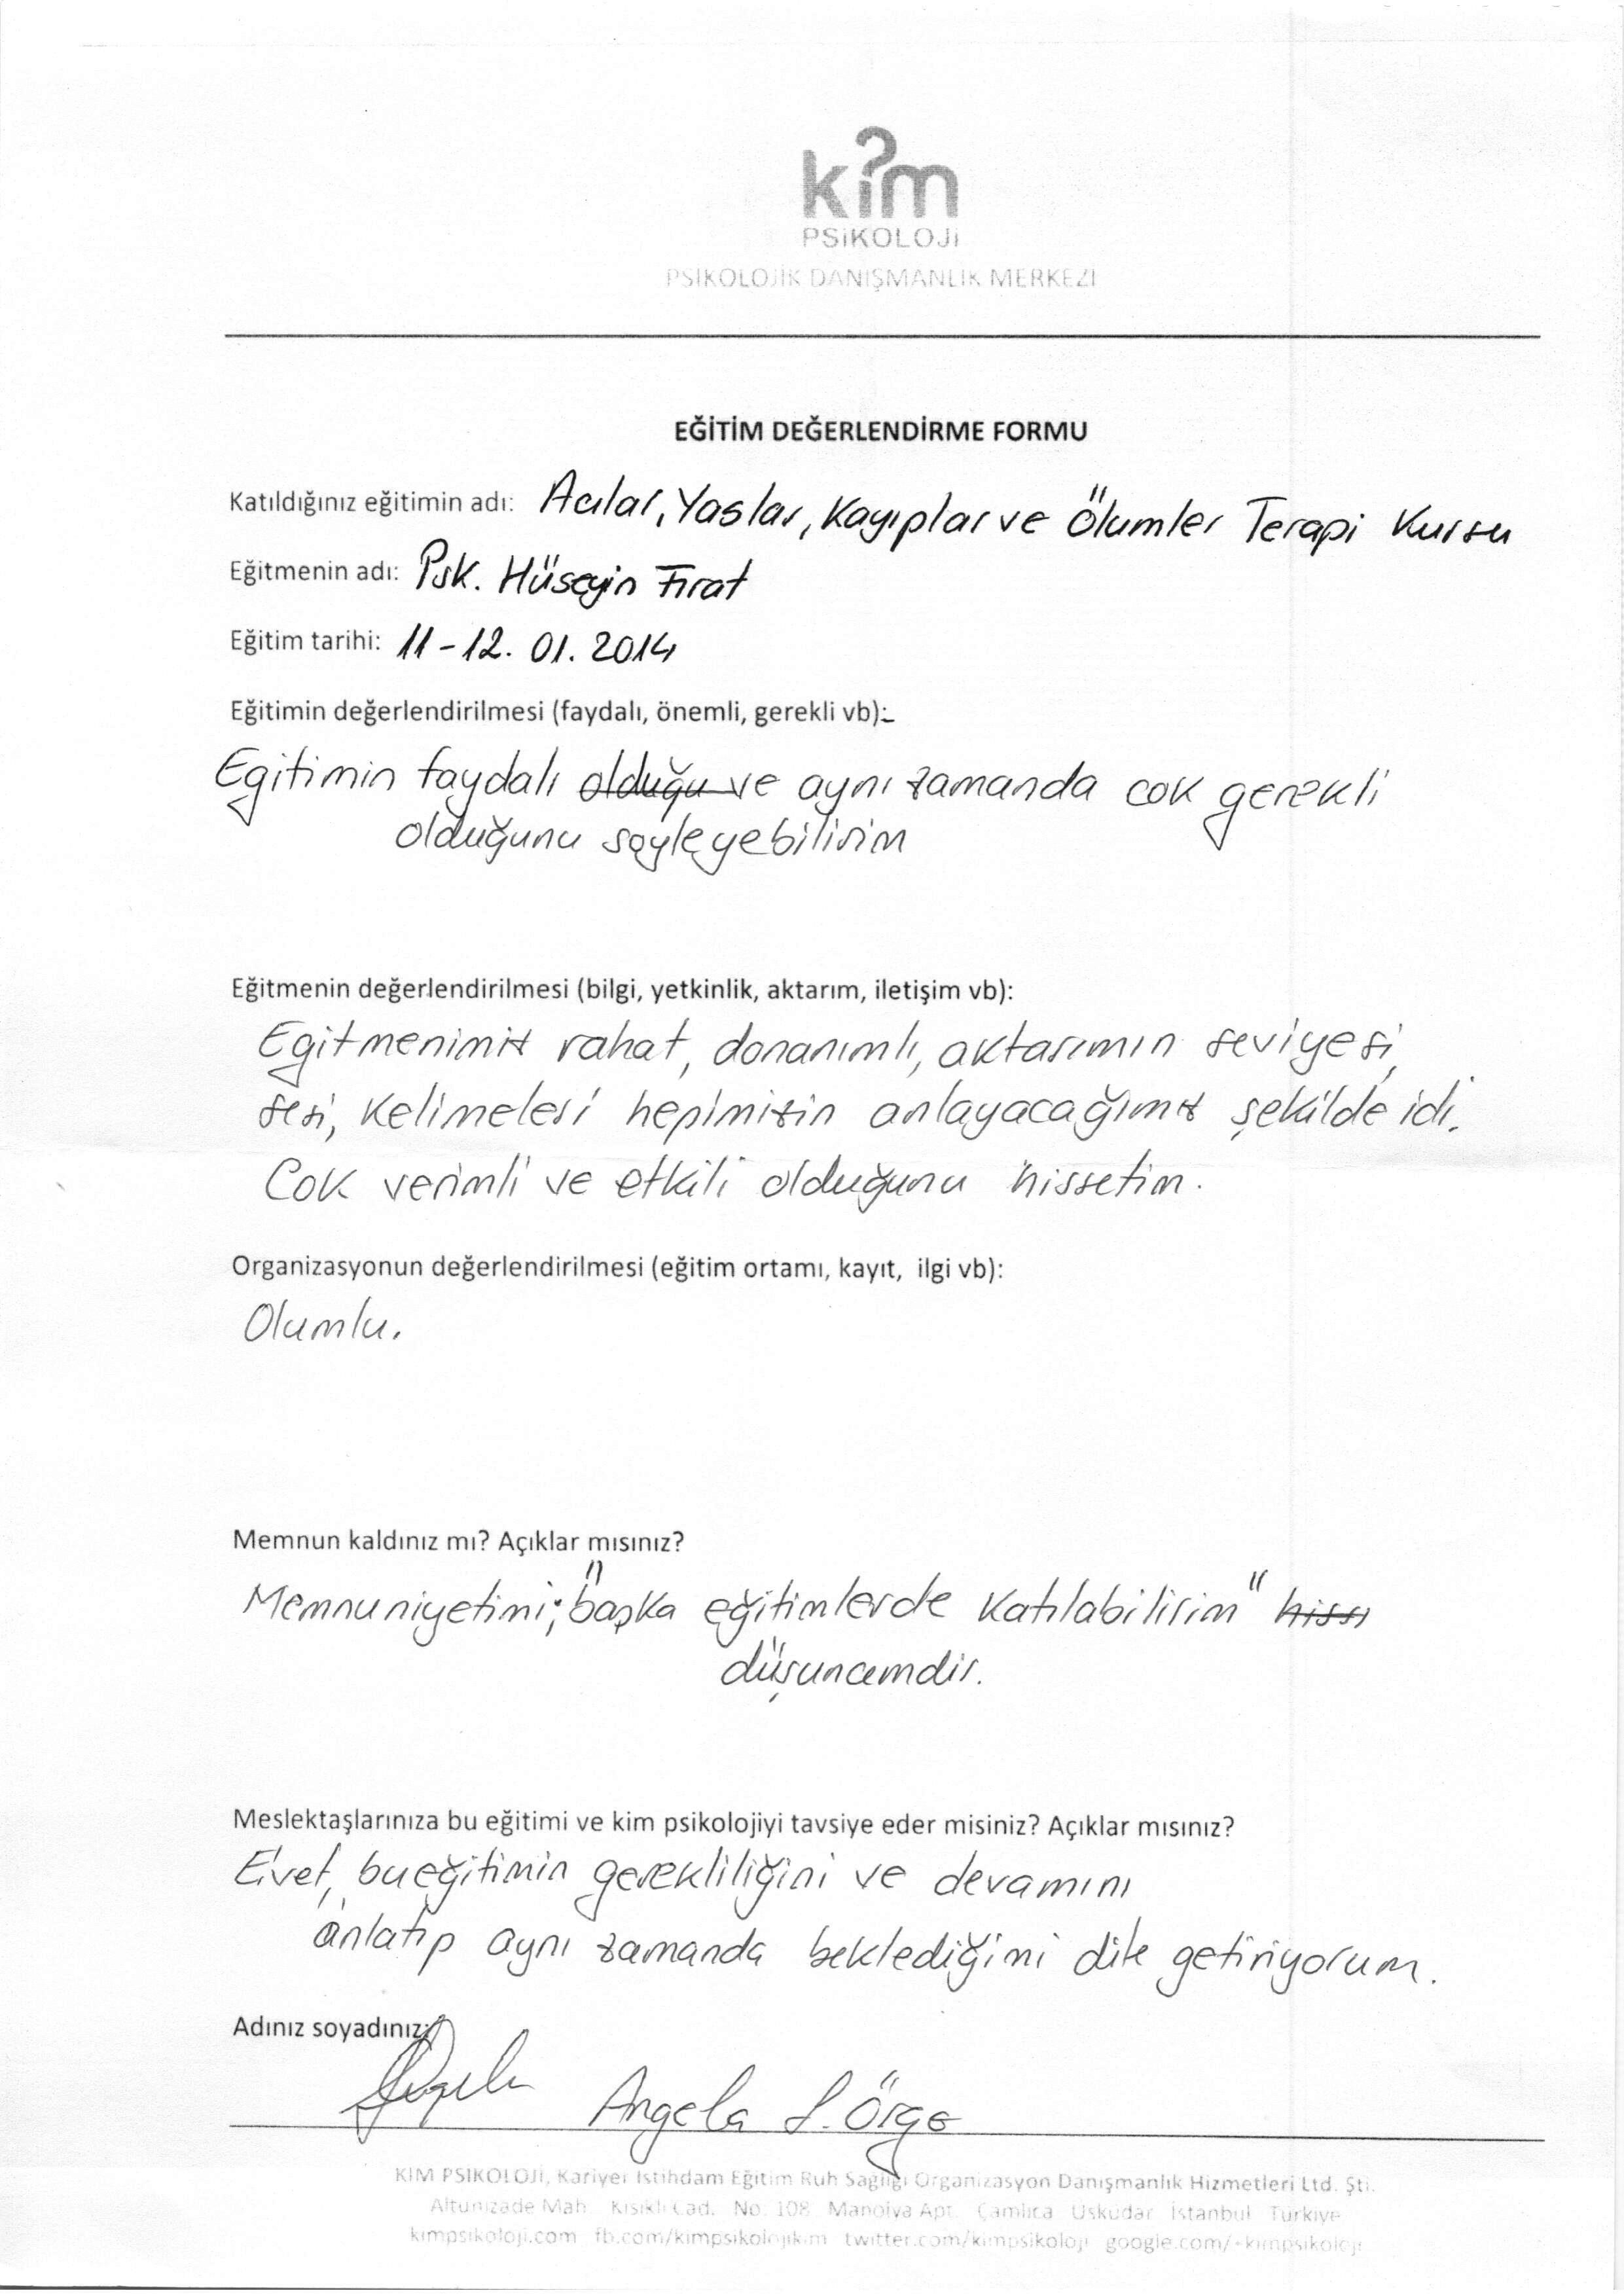 kim
PSİKOLOJİ
PSİKOLOJİK DANIŞMANLIK MERKEZİ
EĞİTİM DEĞERLENDİRME FORMU
Katıldığınız eğitimin adı: Acılar, Yaslar, Kayıplar ve Ölumler Terapi Kursu
Eğitmenin adı: Psk. Hüseyin Fırat
Eğitim tarihi: 11-12. 01. 2014
Eğitimin değerlendirilmesi (faydalı, önemli, gerekli vb):
Egitimin faydalı olduğu ve aynı zamanda cok gerekli
olduğunu soyleyebilirim
Eğitmenin değerlendirilmesi (bilgi, yetkinlik, aktarım, iletişim vb):
Egitmenimiz rahat, donanımlı, aktarımın seviyesi,
sesi, kelimeleri hepimizin anlayacağımız şekilde idi.
Cok verimli ve etkili olduğunu hissetim.
Organizasyonun değerlendirilmesi (eğitim ortamı, kayıt, ilgi vb):
Olumlu.
Memnun kaldınız mı? Açıklar mısınız?
Memnuniyetimi; "başka eğitimlerde katılabilirim" hissi
düşuncemdir.
Meslektaşlarınıza bu eğitimi ve kim psikolojiyi tavsiye eder misiniz? Açıklar mısınız?
Evet, bu eğitimin gerekliliğini ve devamını
anlatıp aynı zamanda beklediğimi dile getiriyorum.
Adınız soyadınız:
Angela S. Örge
KİM PSİKOLOJİ, Kariyer İstihdam Eğitim Ruh Sağlığı Organizasyon Danışmanlık Hizmetleri Ltd. Şti.
Altunizade Mah. Kısıklı Cad. No. 108 Manolya Apt. Çamlıca Üsküdar İstanbul Türkiye
kimpsikoloji.com fb.com/kimpsikolojikim twitter.com/kimpsikoloji google.com/+kimpsikoloji